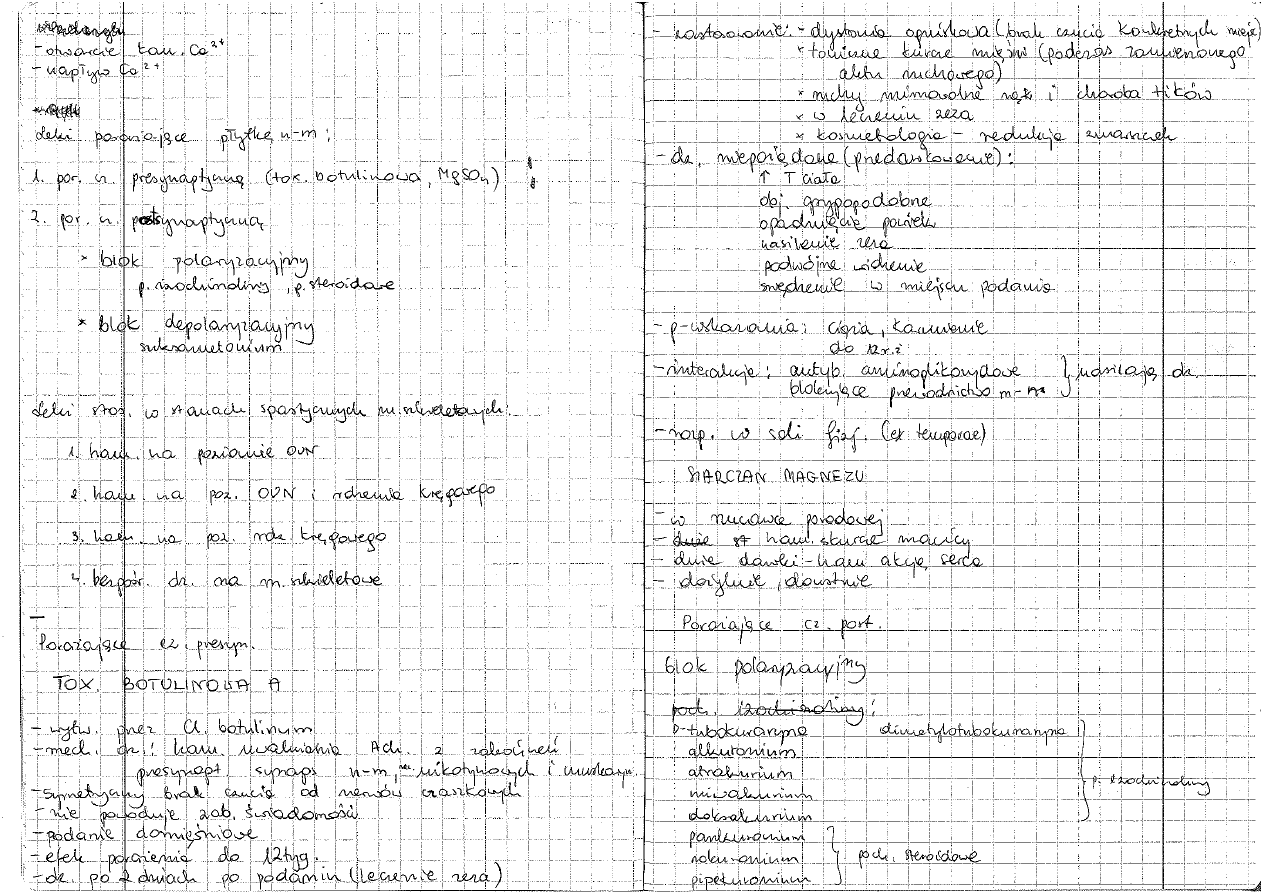 - otwarcie kan. Ca²⁺
- napływ Ca²⁺
Leki porażające płytkę n-m:
1. por. cz. presynaptyczną (tok. botulinowa, MgSO₄)
2. por. cz. postsynaptyczną
* blok polaryzacyjny
p. izochinoliny, p. steroidowe
* blok depolaryzacyjny
suksametonium
Leki stos. w stanach spastycznych m. szkieletowych:
1. ham. na poziomie OUN
2. ham na poz. OUN i rdzenia kręgowego
3. ham. na poz. rdz kręgowego
4. bezpośr. dz. na m. szkieletowe
Porażające cz. presyn.
TOX. BOTULINOWA A
- wytw. przez Cl. botulinum
- mech. dz.: ham. uwalniania Ach. z zakończeń
presynapt. synaps n-m, nikotynowych i muskaryn.
- symetryczny brak czucia od nerwów czaszkowych
- nie powoduje zab. świadomości
- podanie domięśniowe
- efek porażenia do 12 tyg.
- dz. po 2 dniach po podaniu (leczenie zeza)
- zastosowanie: * dystonia ogniskowa (brak czucia konkretnych mięśni)
* toniczne kurcze mięśni (podczas zamierzonego
aktu ruchowego)
* ruchy mimowolne rąk i choroba tików
* w leczeniu zeza
* kosmetologia - redukcja zmarszczek
- dz. niepożądane (przedawkowanie):
↑ T ciała
obj. grypopodobne
opadnięcie powiek
nasilenie zeza
podwójne widzenie
swędzenie w miejscu podania
- p-wskazania: ciąża, karmienie
do 12 r. ż
- interakcje: antyb. aminoglikozydowe } nasilają dz.
blokujące przewodnictwo n-m
- rozp. w soli fizj. (ex tempore)
SIARCZAN MAGNEZU
- w rzucawce porodowej
- ham. skurcze macicy
- duże dawki - ham akcję serca
- dożylnie, doustnie
Porażające cz. post.
blok polaryzacyjny
poch. izochinoliny:
D-tubokuraryna dimetylotubokuraryna
alkuronium
atrakurium
miwakurium p. izochinoliny
doksakurium
pankuronium
rokuronium poch. steroidowe
pipekuronium